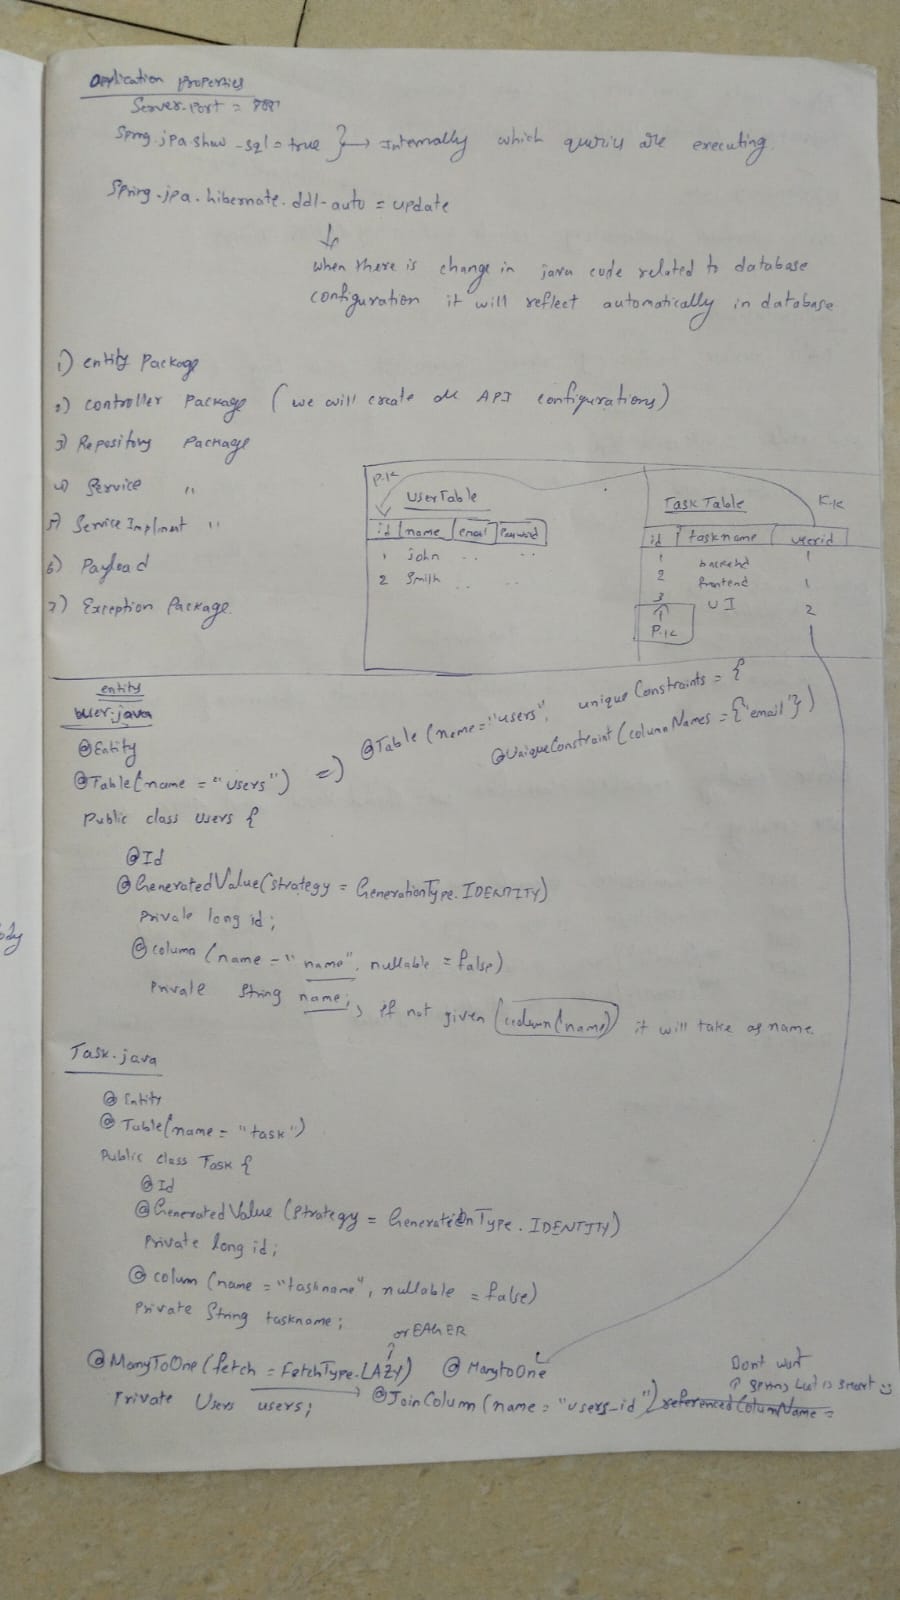 Application Properties
Server.Port =
Spring.jpa.show-sql = true } → Internally which queries are executing.
Spring.jpa.hibernate.ddl-auto = update
when there is change in java code related to database
configuration it will reflect automatically in database
1) entity Package
2) Controller Package (we will create all API configurations)
3) Repository Package
4) Service "
5) Service Implment "
6) Payload
7) Exception Package.
P.k
User Table
id name email Password
1 john .. ..
2 Smith .. ..
Task Table
id taskname userid
1 backend 1
2 frontend 1
3 UI 2
P.k
entity
user.java
@Entity
@Table(name = "users") => @Table (name="users", unique Constraints = {
@UniqueConstraint (columnNames = {"email"})
Public class users {
@Id
@GeneratedValue(strategy = GenerationType.IDENTITY)
Private long id;
@column (name = "name", nullable = false)
Private String name; , if not given (column(name)) it will take as name
Task.java
@Entity
@Table(name = "task")
Public class Task {
@Id
@Generated Value (Strategy = Generation Type. IDENTITY)
Private long id;
@column (name = "taskname", nullable = false)
Private String taskname;
or EAGER
@ManyToOne (fetch = FetchType.LAZY) @ManytoOne
Private Users users; → @JoinColumn (name = "users_id") referencedColumnName =
Dont
is smart